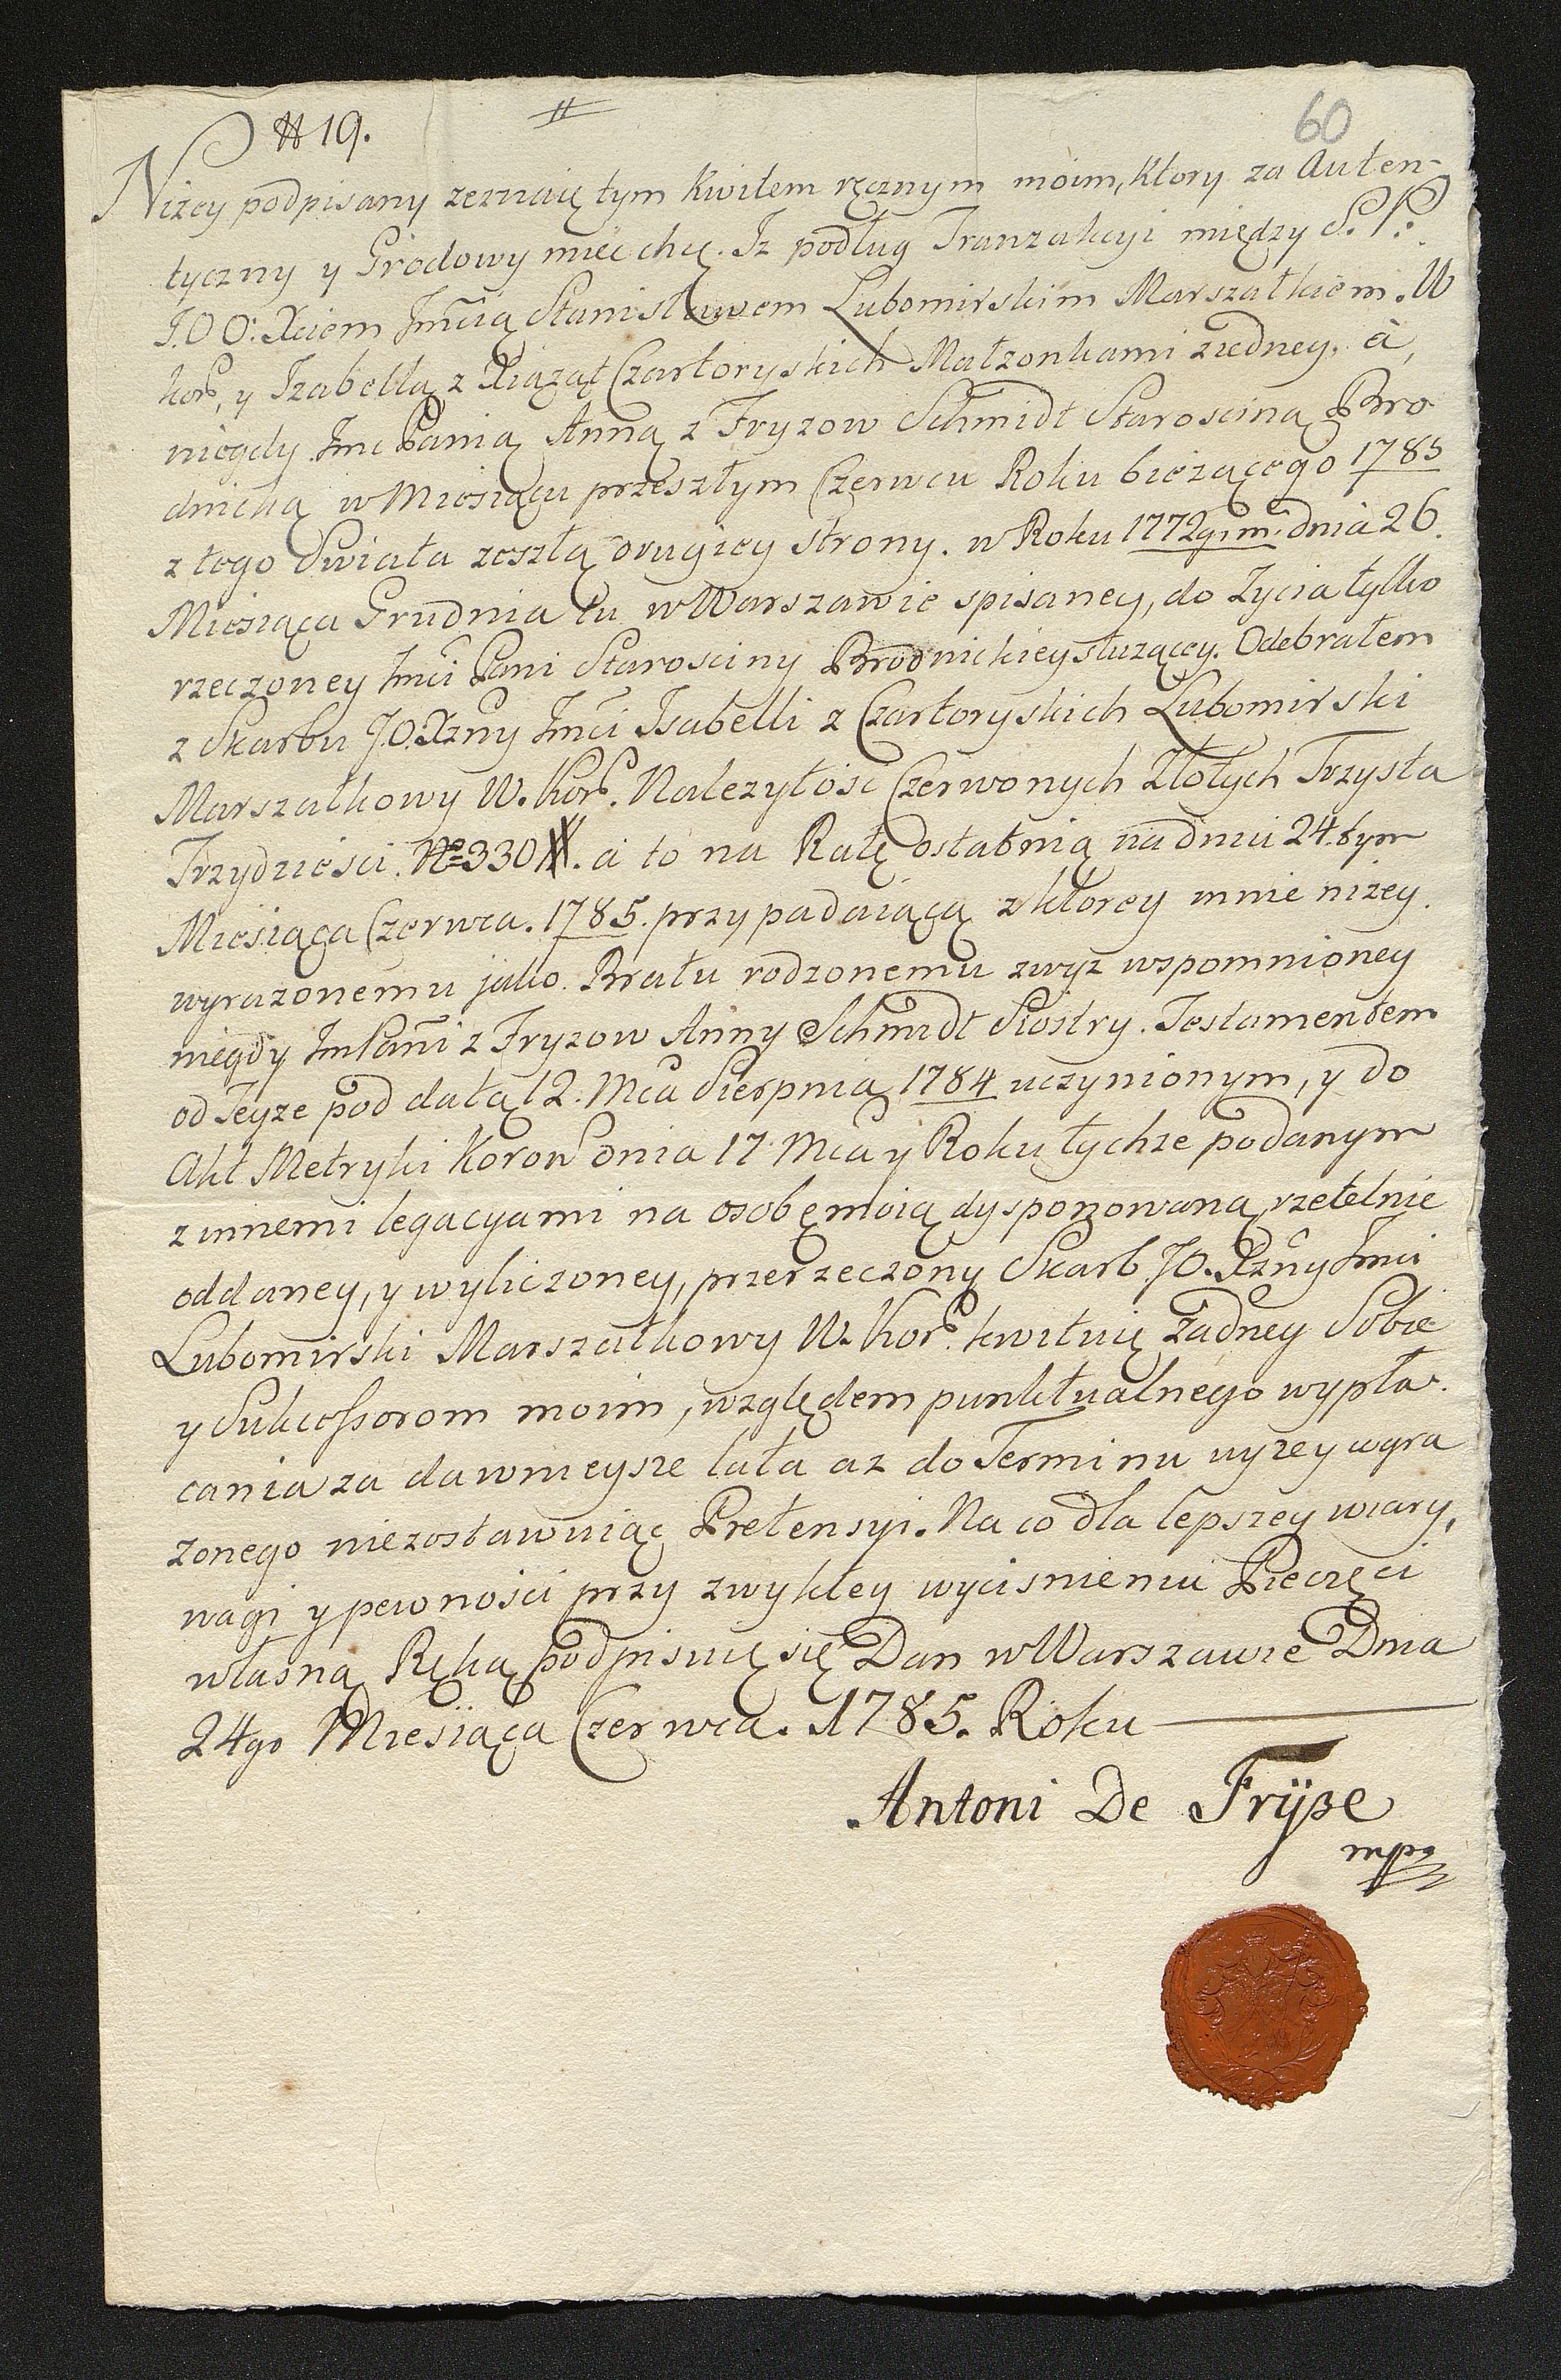 # 19.
60
Niżey podpisany zeznaię tym Kwitem ręcznym moim, Ktory za Auten-
tyczny y Grodowy mieć chcę. Iz podług Tranzakcyi między S. P.
J.O O. Xciem Jmcią Stanisławem Lubomirskim Marszałkiem. W
kor, y Izabellą z Xiąząt Czartoryskich Małzonkami ziedney, a,
niegdy Jmc Panią Anną z Fryzow Schmidt Starościną Bro
dnicką w Miesiącu przeszłym Czerwcu Roku bieżącego 1785
z tego Swiata zeszłą drugiey strony. w Roku 1772gim. dnia 26.
Miesiąca Grudnia tu w Warszawie spisaney, do Zycia tylko
rzeczoney Jmci Pani Starosciny Brodnickiey słuzącey. Odebrałem
z Skarbu J.O. Xzny Jmci Isabelli z Czartoryskich Lubomirski
Marszałkowy W. Kor. Nalezytość Czerwonych Złotych Trzysta
Trzydzieści. No 330 #. a to na Ratę ostatnią na dniu 24.tym
Miesiąca Czerwca. 1785. przypadaiącą z ktorey mnie niżey.
wyrazonemu jako. Bratu rodzonemu zwyz wspomnioney
niegdy Jm Pani z Fryzow Anny Schmidt Siostry. Testamentem
od Teyze pod datą 12. Mca Sierpnia 1784 uczynionym, y do
Akt Metryki Koron dnia 17 Mca y Roku tychze podanym
z innemi legacyami na osobę moią dysponowaną rzetelnie
oddaney, y wyliczoney, przerzeczony Skarb J.O. Xzny Jmci
Lubomirski Marszałkowy W. Kor. kwituię Zadney Sobie
y Sukcessorom moim, względem punktualnego wypła-
cania za dawnieysze lata az do Terminu wyzey wyra
zonego niezostawuiąc Pretensyi. Na co dla lepszey wiary,
wagi y pewności przy zwykłey wyciśnieniu Pieczęci
własną Ręką podpisuię się Dan w Warszawie Dnia
24go Miesiąca Czerwca. 1785. Roku
Antoni De Fryße
mpo